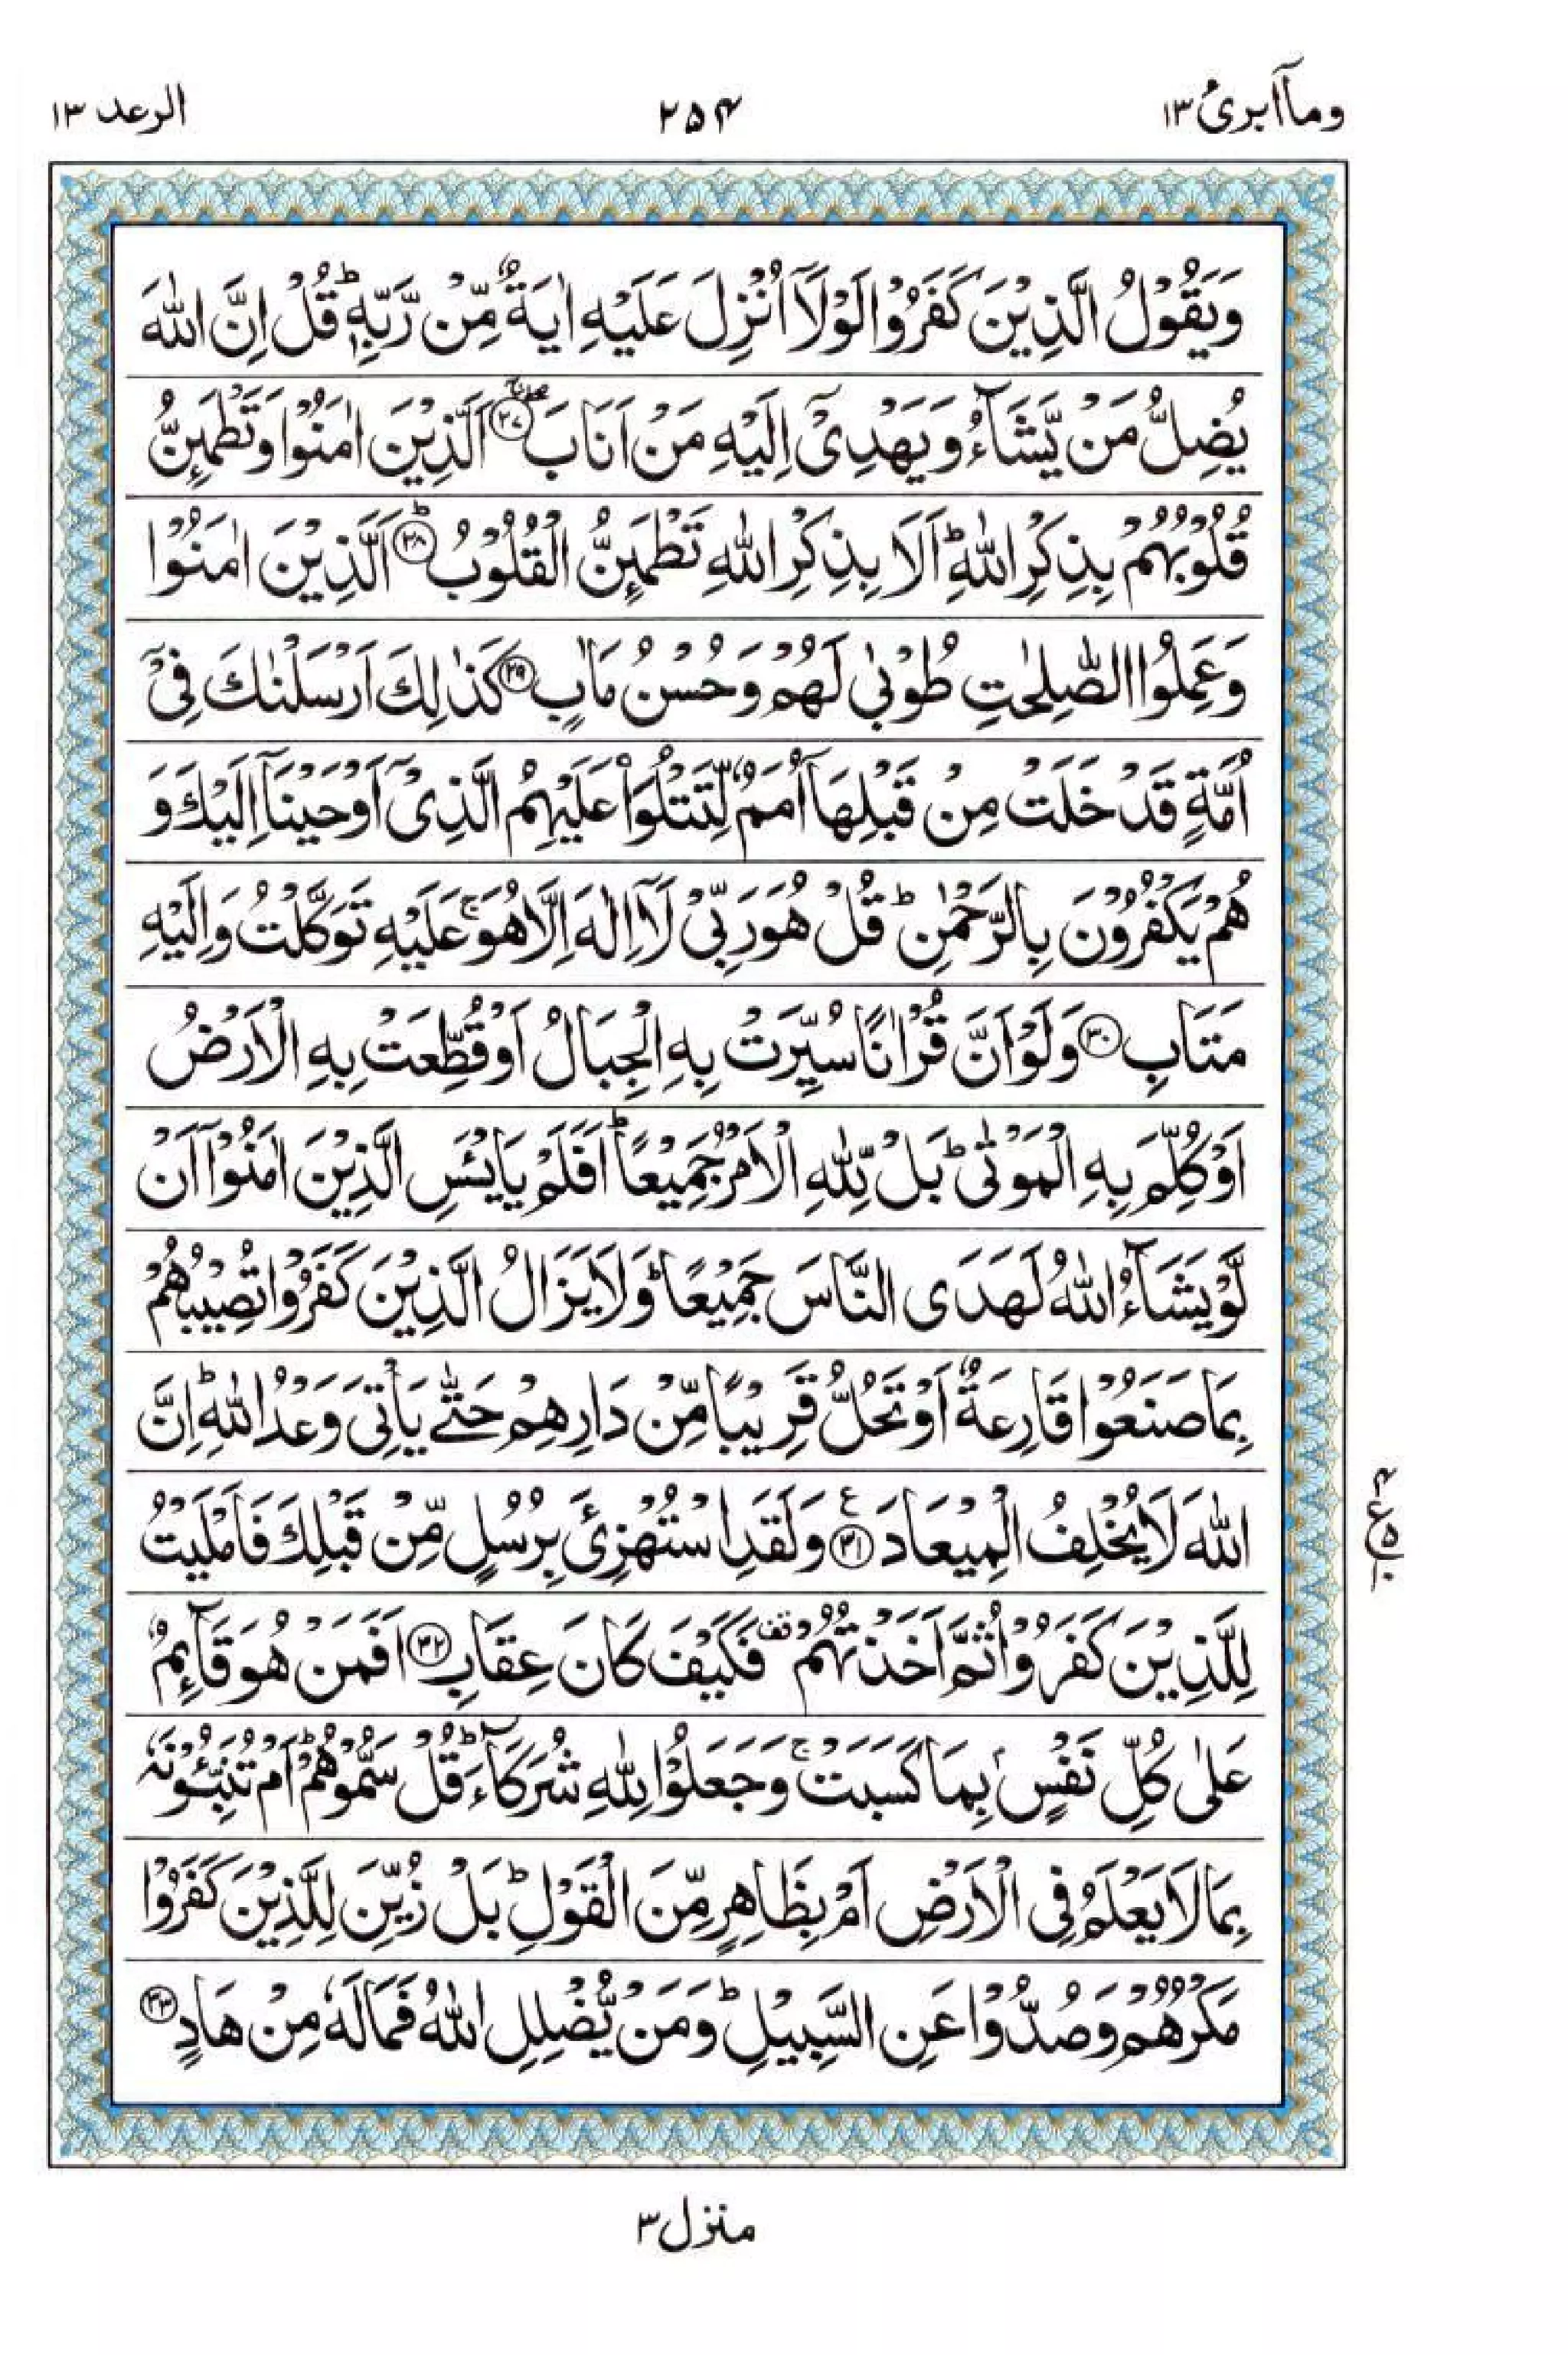 وماۤابرئ ١٣
٢٥٤
الرعد ١٣
وَيَقُوْلُ الَّذِيْنَ كَفَرُوْا لَوْلَاۤ اُنْزِلَ عَلَيْهِ اٰيَةٌ مِّنْ رَّبِّهٖ ؕ قُلْ اِنَّ اللّٰهَ
يُضِلُّ مَنْ يَّشَآءُ وَيَهْدِىْۤ اِلَيْهِ مَنْ اَنَابَ ۖۚ ﴿٢٧﴾ اَلَّذِيْنَ اٰمَنُوْا وَتَطْمَئِنُّ
قُلُوْبُهُمْ بِذِكْرِ اللّٰهِ ؕ اَلَا بِذِكْرِ اللّٰهِ تَطْمَئِنُّ الْقُلُوْبُ ؕ ﴿٢٨﴾ اَلَّذِيْنَ اٰمَنُوْا
وَعَمِلُوا الصّٰلِحٰتِ طُوْبٰى لَهُمْ وَحُسْنُ مَاٰبٍ ﴿٢٩﴾ كَذٰلِكَ اَرْسَلْنٰكَ فِىْۤ
اُمَّةٍ قَدْ خَلَتْ مِنْ قَبْلِهَاۤ اُمَمٌ لِّتَتْلُوَا۟ عَلَيْهِمُ الَّذِىْۤ اَوْحَيْنَاۤ اِلَيْكَ وَ
هُمْ يَكْفُرُوْنَ بِالرَّحْمٰنِ ؕ قُلْ هُوَ رَبِّىْ لَاۤ اِلٰهَ اِلَّا هُوَ ۚ عَلَيْهِ تَوَكَّلْتُ وَاِلَيْهِ
مَتَابِ ﴿٣٠﴾ وَلَوْ اَنَّ قُرْاٰنًا سُيِّرَتْ بِهِ الْجِبَالُ اَوْ قُطِّعَتْ بِهِ الْاَرْضُ
اَوْ كُلِّمَ بِهِ الْمَوْتٰى ؕ بَلْ لِّلّٰهِ الْاَمْرُ جَمِيْعًا ؕ اَفَلَمْ يَايْئَسِ الَّذِيْنَ اٰمَنُوْۤا اَنْ
لَّوْ يَشَآءُ اللّٰهُ لَهَدَى النَّاسَ جَمِيْعًا ؕ وَلَا يَزَالُ الَّذِيْنَ كَفَرُوْا تُصِيْبُهُمْ
بِمَا صَنَعُوْا قَارِعَةٌ اَوْ تَحُلُّ قَرِيْبًا مِّنْ دَارِهِمْ حَتّٰى يَاْتِىَ وَعْدُ اللّٰهِ ؕ اِنَّ
اللّٰهَ لَا يُخْلِفُ الْمِيْعَادَ ﴿٣١﴾ ع وَلَقَدِ اسْتُهْزِئَ بِرُسُلٍ مِّنْ قَبْلِكَ فَاَمْلَيْتُ
لِلَّذِيْنَ كَفَرُوْا ثُمَّ اَخَذْتُهُمْ قف فَكَيْفَ كَانَ عِقَابِ ﴿٣٢﴾ اَفَمَنْ هُوَ قَآئِمٌ
عَلٰى كُلِّ نَفْسٍۢ بِمَا كَسَبَتْ ۚ وَجَعَلُوْا لِلّٰهِ شُرَكَآءَ ؕ قُلْ سَمُّوْهُمْ ؕ اَمْ تُنَبِّئُوْنَهٗ
بِمَا لَا يَعْلَمُ فِى الْاَرْضِ اَمْ بِظَاهِرٍ مِّنَ الْقَوْلِ ؕ بَلْ زُيِّنَ لِلَّذِيْنَ كَفَرُوْا
مَكْرُهُمْ وَصُدُّوْا عَنِ السَّبِيْلِ ؕ وَمَنْ يُّضْلِلِ اللّٰهُ فَمَا لَهٗ مِنْ هَادٍ ﴿٣٣﴾
منزل ٣